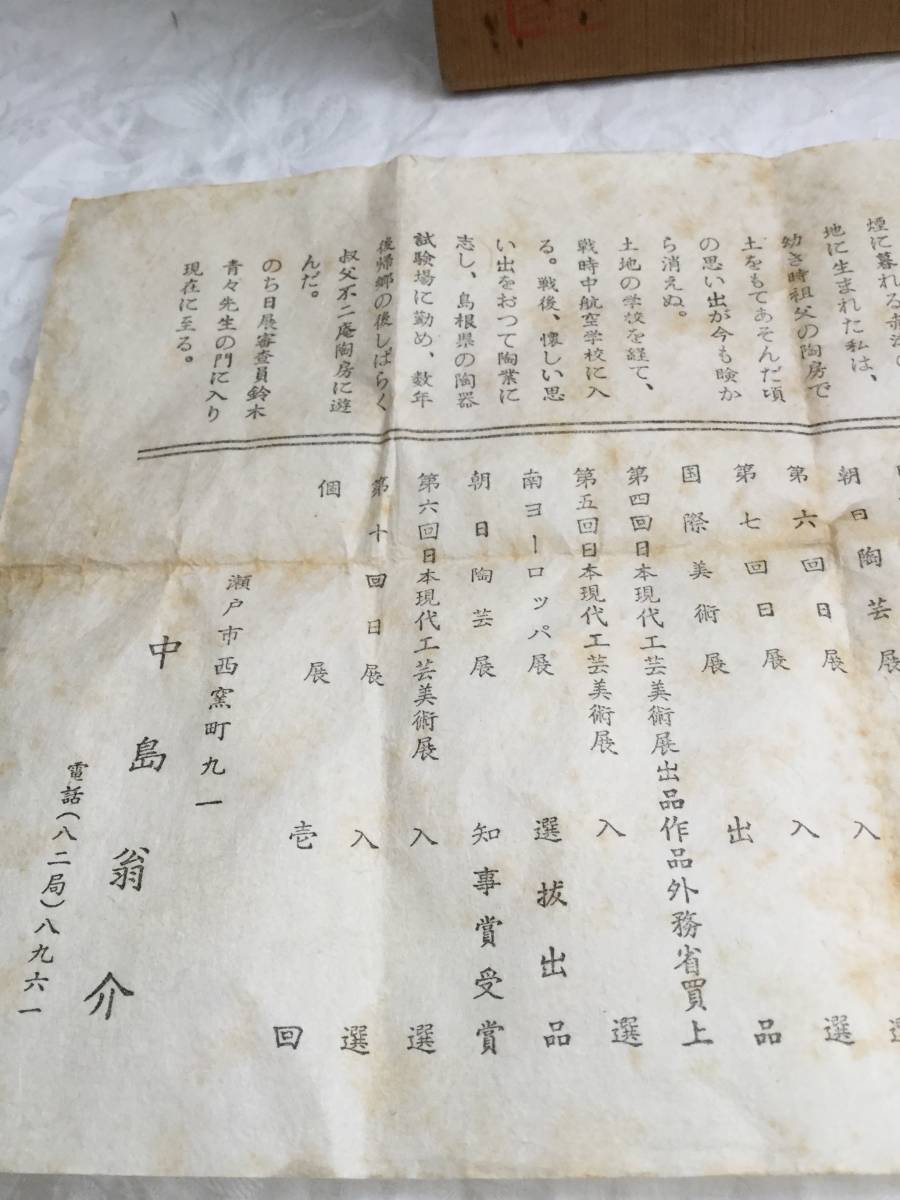 煙に暮れる赤津の
地に生まれた私は、
幼き時祖父の陶房で
土をもてあそんだ頃
の思い出が今も瞼か
ら消えぬ。
土地の学校を経て、
戦時中航空学校に入
る。戦後、懐しい思
い出をおつて陶業に
志し、島根県の陶器
試験場に勤め、数年
後帰郷の後しばらく
叔父不二庵陶房に遊
んだ。
のち日展審査員鈴木
青々先生の門に入り
現在に至る。
朝日陶芸展 入選
第六回日展 入選
第七回日展 出品
国際美術展
第四回日本現代工芸美術展出品作品外務省買上
第五回日本現代工芸美術展 入選
南ヨーロッパ展 選抜出品
朝日陶芸展 知事賞受賞
第六回日本現代工芸美術展 入選
第十回日展 入選
個展 壱回
瀬戸市西窯町九一
中島翁介
電話(八二局)八九六一